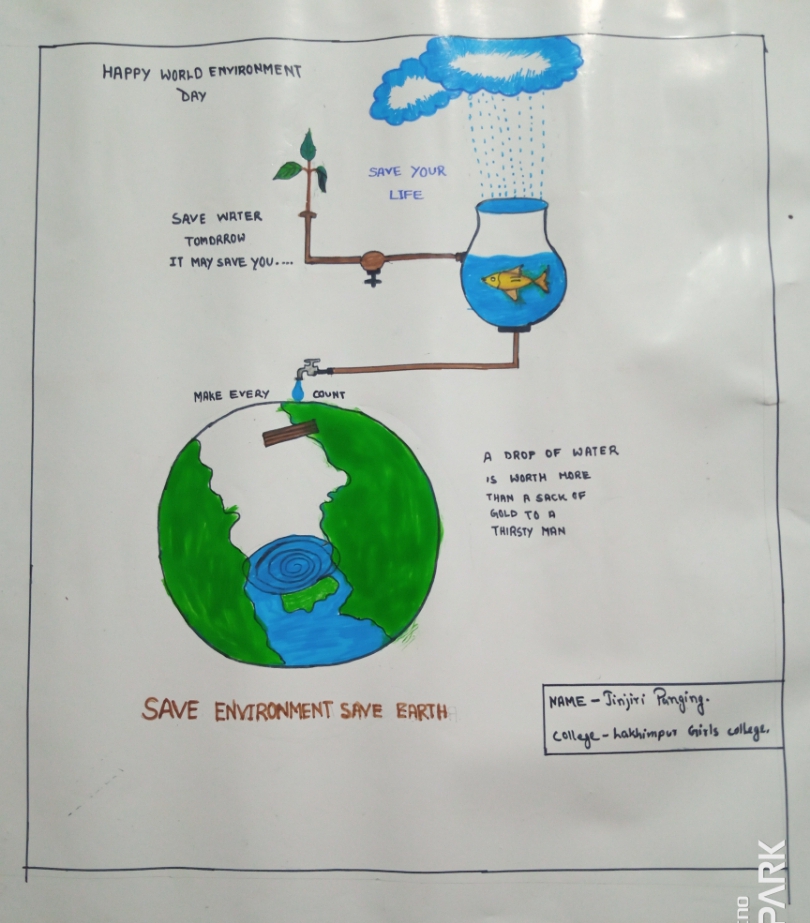 HAPPY WORLD ENVIRONMENT
DAY
SAVE YOUR
LIFE
SAVE WATER
TOMORROW
IT MAY SAVE YOU....
MAKE EVERY COUNT
A DROP OF WATER
IS WORTH MORE
THAN A SACK OF
GOLD TO A
THIRSTY MAN
SAVE ENVIRONMENT SAVE EARTH
NAME - Jinjiri Panging.
College - Lakhimpur Girls College.
PARK